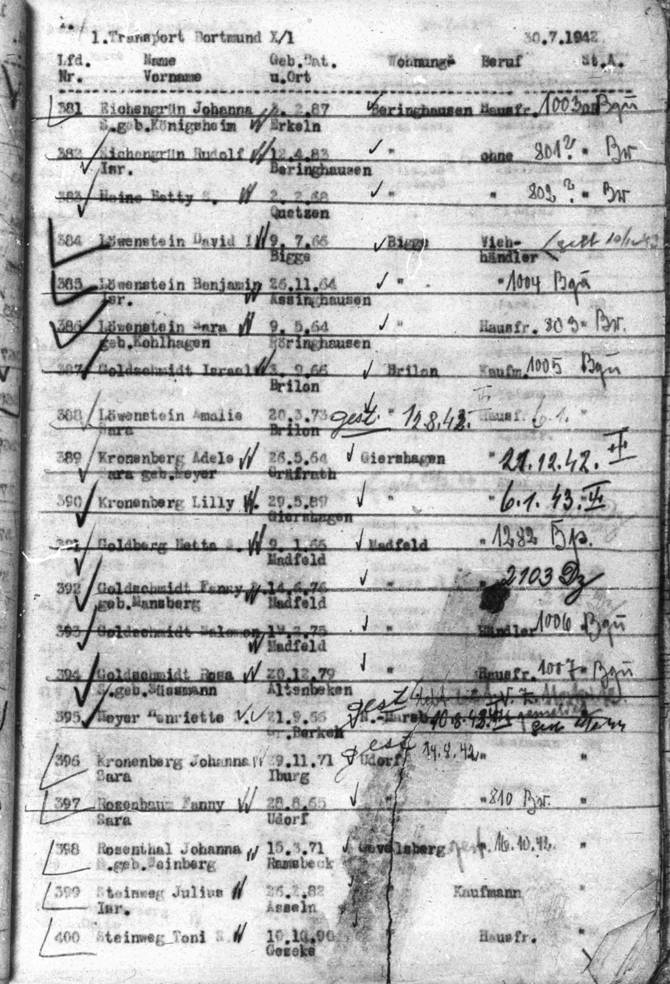 1.Transport Dortmund X/1 30.7.1942
Lfd. Name Geb.Dat. Wohnung Beruf St.A.
Nr. Vorname u.Ort
381 Eichengrün Johanna 2.87 Beringhausen Hausfr. 1003
S.geb.Königsheim Erkeln
382 Eichengrün Rudolf 12.4.83 " ohne 801 " Br
Isr. Beringhausen
383 Heine Betty S. 2.2.68 " " 802 " Br
Quetzen
384 Löwenstein David I 9.7.66 Bigge Vieh-
Bigge händler
385 Löwenstein Benjamin 26.11.64 " " 1004 Bgü
Isr. Assinghausen
386 Löwenstein Sara 9.5.64 " Hausfr. 803 " Br.
geb.Kohlhagen Höringhausen
387 Goldschmidt Israel 9.66 Brilon Kaufm. 1005 Bgü
Brilon
388 Löwenstein Amalie 20.3.73 gest. " 12.8.42. Hausf. 6.1.
Sara Brilon
389 Kronenberg Adele 26.5.64 Giershagen " 21.12.42. "
Sara geb.Meyer Gräfrath
390 Kronenberg Lilly 29.5.89 " " 6.1.43. "
Giershagen
391 Goldberg Netta S. 9.1.66 Madfeld " 1282
Madfeld
392 Goldschmidt Fanny 14.6.76 " " 2103 Dz
geb.Mansberg Madfeld
393 Goldschmidt Salomon 2.75 " Händler 1006 Bgü
Madfeld
394 Goldschmidt Rosa 20.12.79 " Hausfr. 1007 " Bgü
S.geb.Süssmann Altenbeken
395 Meyer Henriette 21.9.66 gest 10.8.42
396 Kronenberg Johanna 29.11.71 gest Udorf 14.8.42 " "
Sara Iburg
397 Rosenbaum Fanny 28.8.65 " " 810 Br. "
Sara Udorf
398 Rosenthal Johanna 15.3.71 Gevelsberg gest. " 16.10.42. "
S.geb.Weinberg Ramsbeck
399 Steinweg Julius 26.2.82 " Kaufmann "
Isr. Asseln
400 Steinweg Toni S. 10.10.90 " Hausfr. "
Geseke